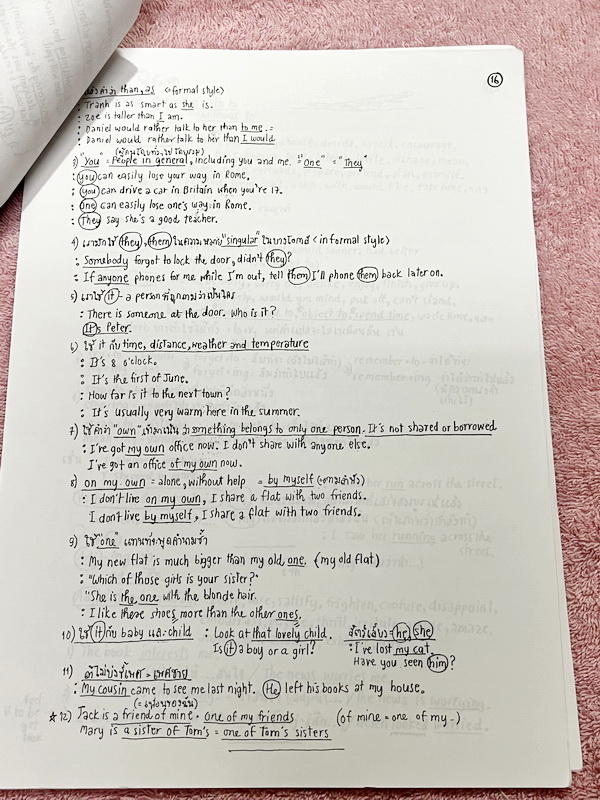 16
than, as <formal style>
: Tranh is as smart as she is.
: Zoe is taller than I am.
: Daniel would rather talk to her than to me. =
: Daniel would rather talk to her than I would.
3) "You" = People in general, including you and me. = "One" = "They"
: You can easily lose your way in Rome.
: You can drive a car in Britain when you're 17.
: One can easily lose one's way in Rome.
: They say she's a good teacher.
4) เรามักใช้ they, them ในความหมาย "singular" ในบางโอกาส <informal style>
: Somebody forgot to lock the door, didn't they?
: If anyone phones for me while I'm out, tell them I'll phone them back later on.
5) เราใช้ it - a person ที่ถูกถามว่าเป็นใคร
: There is someone at the door. Who is it?
It's Peter.
6) ใช้ it กับ time, distance, weather and temperature
: It's 8 o'clock.
: It's the first of June.
: How far is it to the next town?
: It's usually very warm here in the summer.
7) ใช้คำว่า "own" ว่า something belongs to only one person. It's not shared or borrowed
: I've got my own office now. I don't share with anyone else.
I've got an office of my own now.
8) on my own = alone, without help = by myself
: I don't live on my own, I share a flat with two friends.
I don't live by myself, I share a flat with two friends.
9) ใช้ "one" แทนที่จะพูดคำนามซ้ำ
: My new flat is much bigger than my old one. (my old flat)
: "Which of those girls is your sister?"
"She is the one with the blonde hair.
: I like these shoes more than the other ones.
10) ใช้ it กับ baby และ child : Look at that lovely child. สัตว์เลี้ยง = he, she
Is it a boy or a girl? : I've lost my cat.
Have you seen him?
11) ถ้าไม่บ่งชี้เพศ = เพศชาย
: My cousin came to see me last night. He left his books at my house.
(= เพื่อนของฉัน)
☆ 12) Jack is a friend of mine = one of my friends (of mine = one of my -)
Mary is a sister of Tom's = one of Tom's sisters